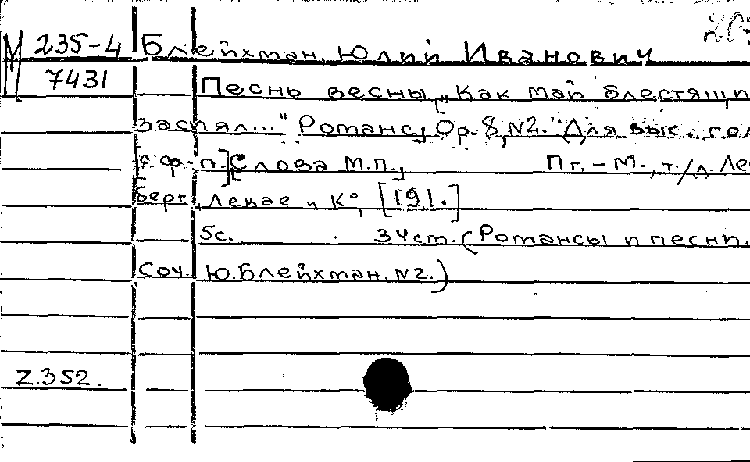 М 235-4 Блейхман, Юлий Иванович
7431 Песнь весны, „Как май блестящи
заснял..." Романс, Ор. 8, №2. Для выс. гол
[с ф-п.] Слова М.П., Пг.-М., т./д. Ле
берт, Левае и К°, [191.]
5с. 34см. (Романсы и песни.
Соч. Ю. Блейхман. №2.)
Z.352.